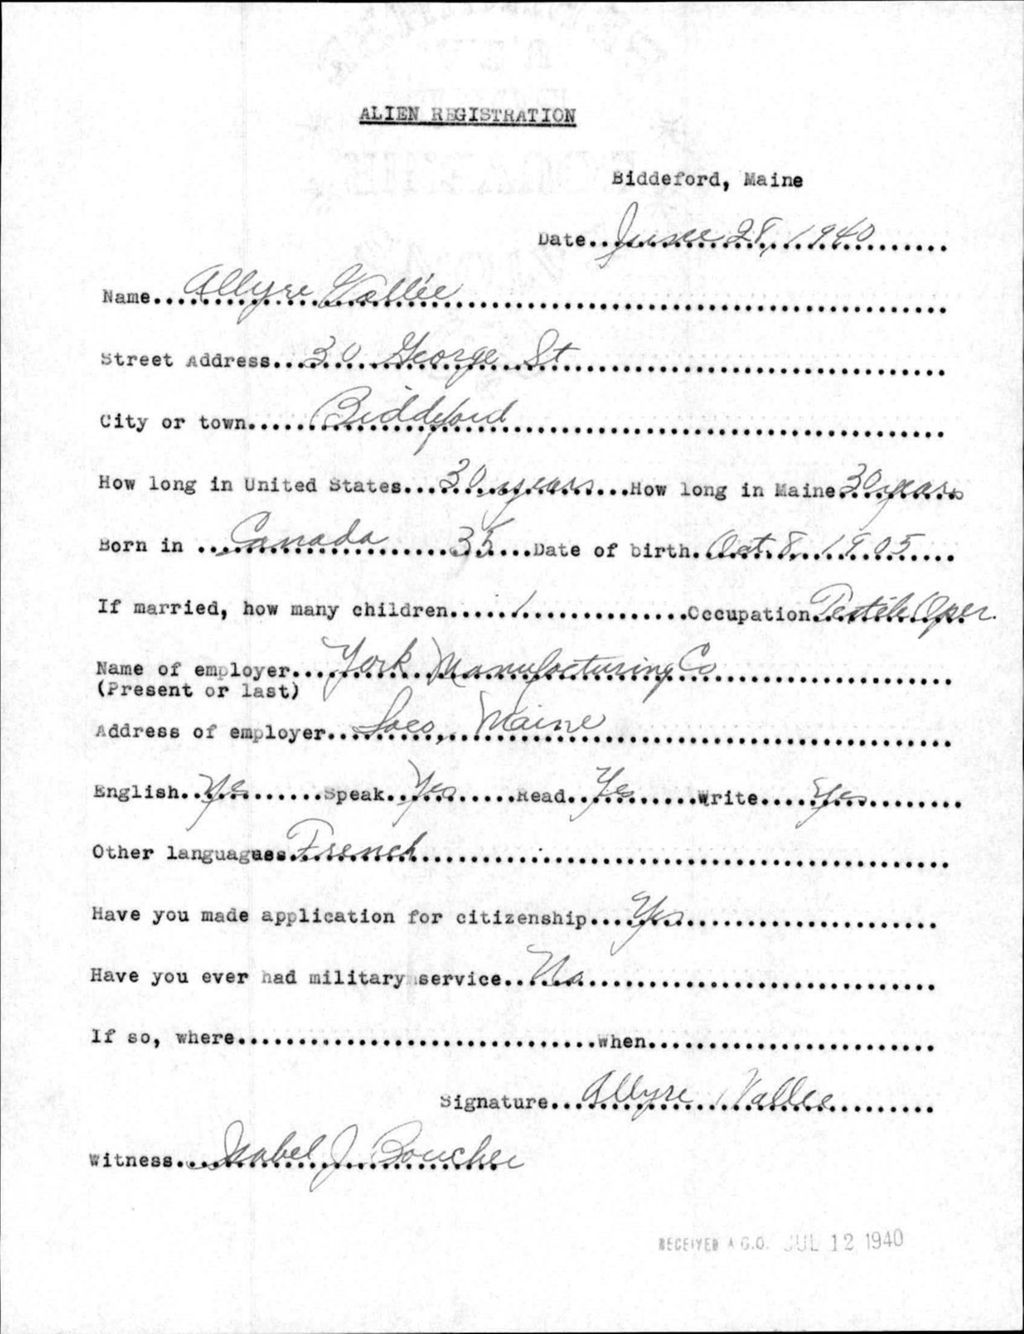 ALIEN REGISTRATION
Biddeford, Maine
Date..June 28, 1940
Name...Allyre Vallée
Street Address...30 George St
City or town......Biddeford
How long in United States...30 years...How long in Maine 30 years
Born in ..Canada 35...Date of birth.Oct 8, 1905
If married, how many children.....1...............Occupation.Textile Oper.
Name of employer...York Manufacturing Co
(Present or last)
Address of employer..Saco, Maine
English..Yes.......Speak..Yes......Read..Yes......Write....Yes
Other languagues.French
Have you made application for citizenship....Yes
Have you ever had military service..No
If so, where..............................When.......................
Signature...Allyre Vallee
Witness...Isabel J Boucher
RECEIVED A.G.O. JUL 12 1940